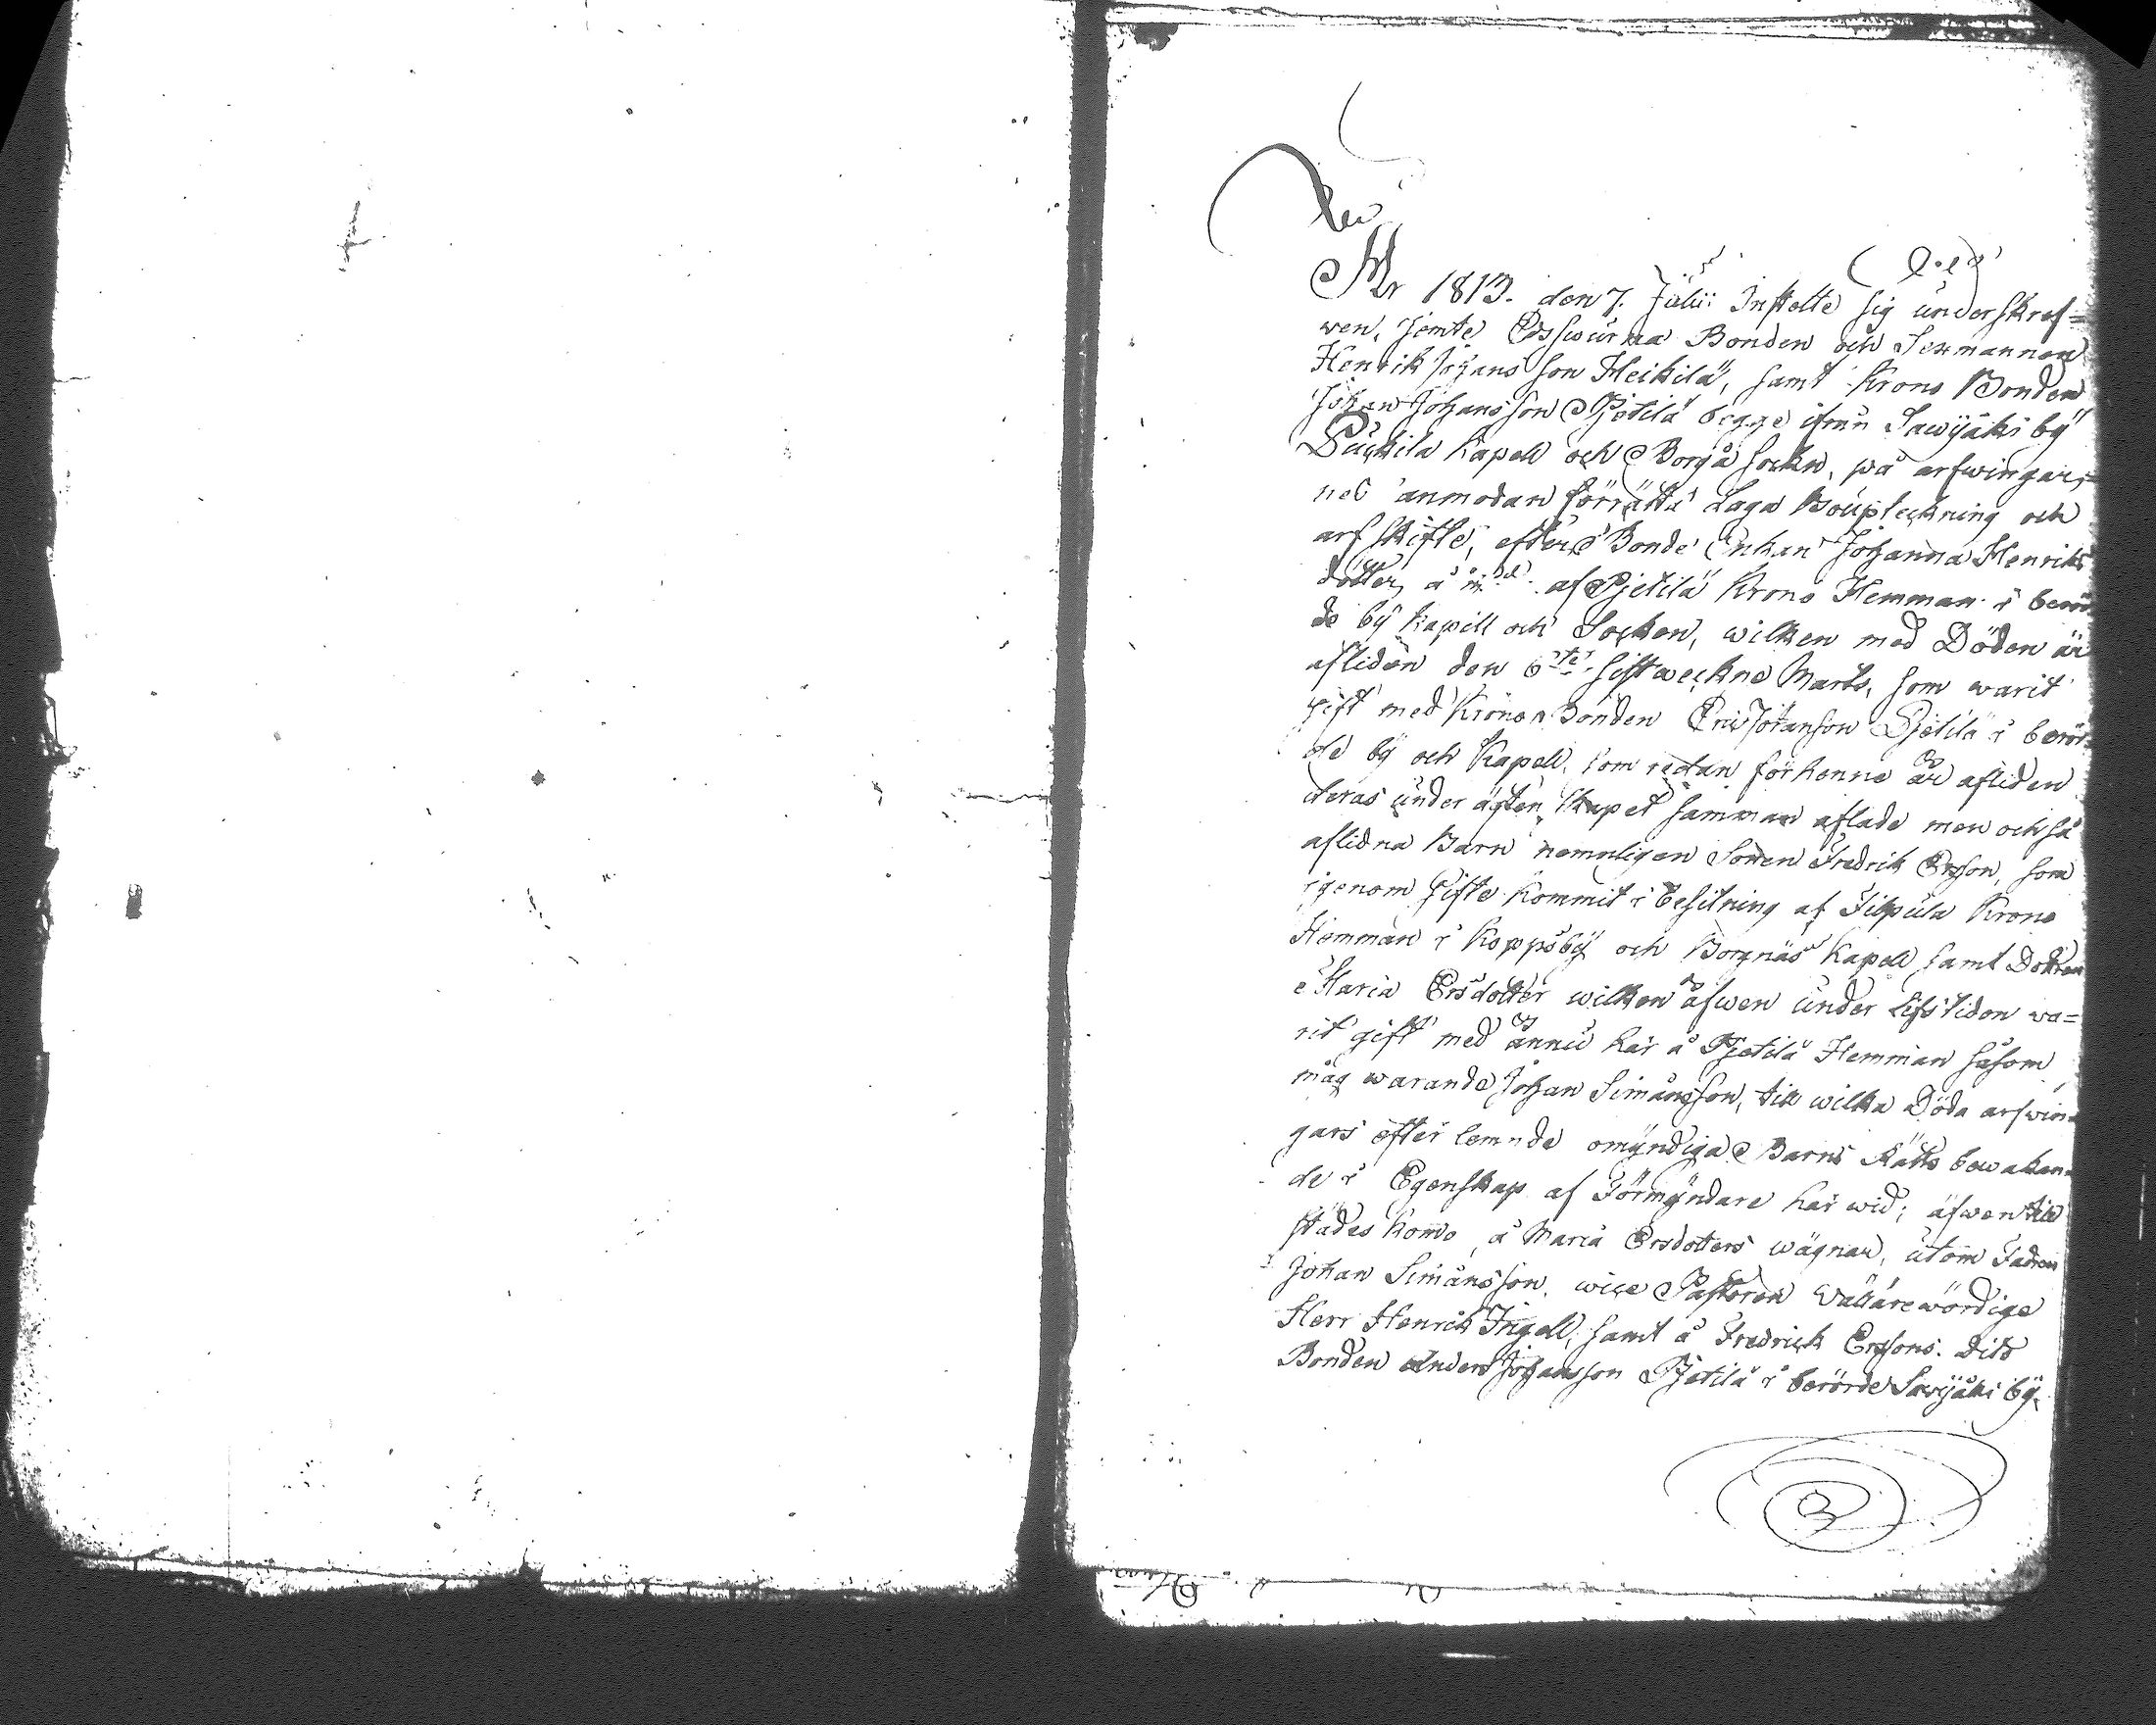 År 1813. den 7. Julii Instelte sig underskref=
wen, jemte Edswurna Bonden och Sexmannen
Henrik Johans son Heikilä, samt Krono Bonden
Johan Johansson Pjetilä begge ifrån Sawijäki bÿ
Puckila Kapell och Borgå sockn, på arfwingar=
nes anmodan förrätta Laga Bouptekning och
arfskifte, efter Bonde Enkan Johanna Henriks
dotter å af Pjetilä Krono Hemman i berör
de bÿ Kapell och Socken, wilken med Döden är
afliden den 6te sistwekne Marts, som warit
gift med Krono Bonden Eric Johanson Pjetilä i berör=
de bÿ och Kapell, som redan för henne är afliden
deras under äktenskapet samman aflade men också
aflidna Barn nemnligen Sonen Fredrik Ersson, som
igenom gifte kommit i besitning af Filpula Krono
Hemman i Koppsbÿ och Borgnäs Kapell samt Dottren
Maria Ersdotter wilken äfwen under Lifstiden wa=
rit gift med ännu här å Pjetilä Hemman såsom
måg warande Johan Simånsson, till wilka Döda arfwin=
gars efter lemnde omÿndiga Barns Rätts bewakan=
de i Egenskap af Förmÿndare här wid; äfwen till
städes komo, å Maria Ersdotters wägnar, utom Fadren
Johan Simånsson, wice Pastoren Wällärewördige
Herr Henrik Ingell, samt å Fredrick Erssons. dito
Bonden Anders Johansson Pjetilä i berörde Sawijäki bÿ.